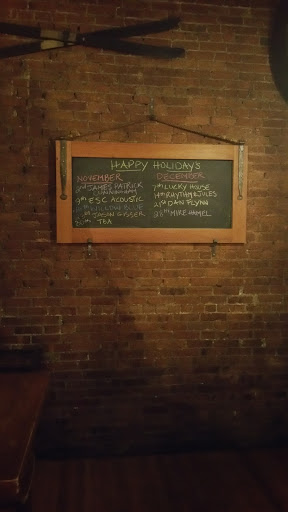 HAPPY HOLIDAYS
NOVEMBER
2nd JAMES PATRICK
CUNNINGHAM
9th ESC ACOUSTIC
WILLOW BLUE
JASON GISSER
TBA
DECEMBER
7th LUCKY HOUSE
14th RHYTHM & JULES
21st DAN FLYNN
28th MIKE HAMEL